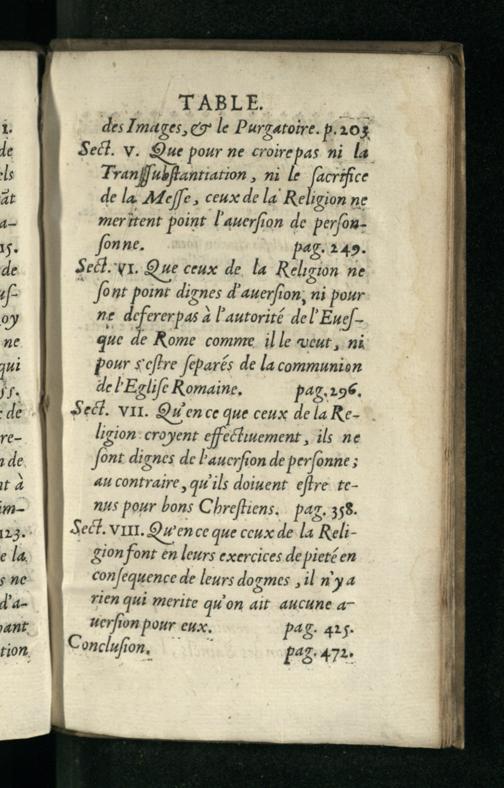 1.
de
els
ât
a-
15.
de
uf-
oy
ne
qui
55.
de
re-
n de
nt à
im-
123.
e la
s ne
d'a-
uant
tion
TABLE.
des Images, & le Purgatoire. p. 203
Sect. V. Que pour ne croire pas ni la
Transſubstantiation, ni le sacrifice
de la Meſſe, ceux de la Religion ne
meritent point l'averſion de perſon-
ſonne. pag. 249.
Sect. VI. Que ceux de la Religion ne
ſont point dignes d'averſion, ni pour
ne deferer pas à l'autorité de l'Eueſ-
que de Rome comme il le veut, ni
pour s'eſtre ſeparés de la communion
de l'Egliſe Romaine. pag. 296.
Sect. VII. Qu'en ce que ceux de la Re-
ligion croyent effectiuement, ils ne
ſont dignes de l'auerſion de perſonne;
au contraire, qu'ils doiuent eſtre te-
nus pour bons Chreſtiens. pag. 358.
Sect. VIII. Qu'en ce que ceux de la Reli-
gion font en leurs exercices de pieté en
conſequence de leurs dogmes, il n'y a
rien qui merite qu'on ait aucune a-
uerſion pour eux. pag. 425.
Concluſion. pag. 472.